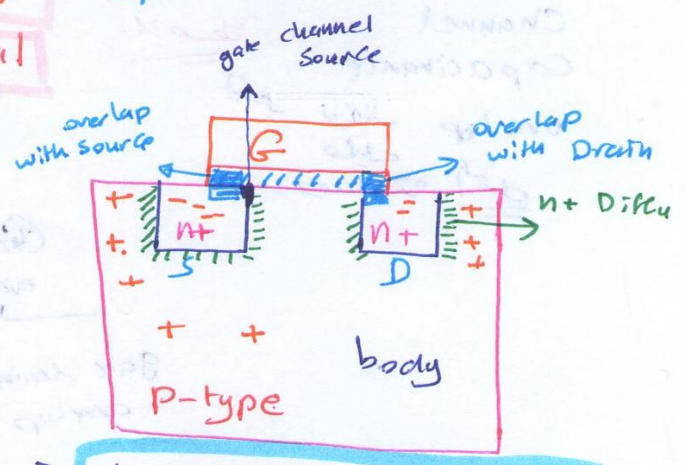 gate channel
source
overlap
with source
overlap
with Drain
G
n+
n+
n+ Diffu
S
D
body
P-type